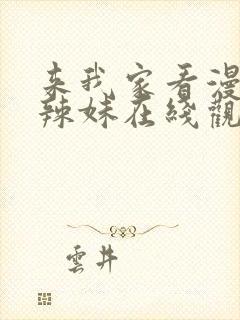 来我家看漫
辣妹在綫觀
雲井